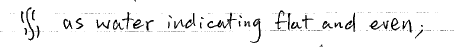 as water indicating flat and even;